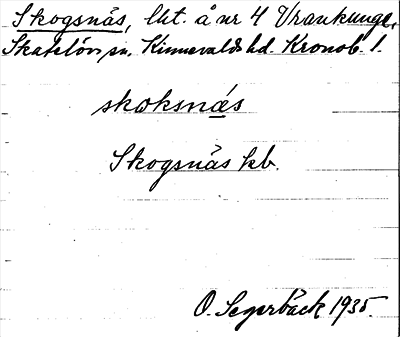 Skogsnäs, lht. å nr 4 Vrankunge,
Skatelöv sn. Kinnevalds hd. Kronob. l.
skoksnä̲s
Skogsnäs kb.
O. Segerbäck 1935.